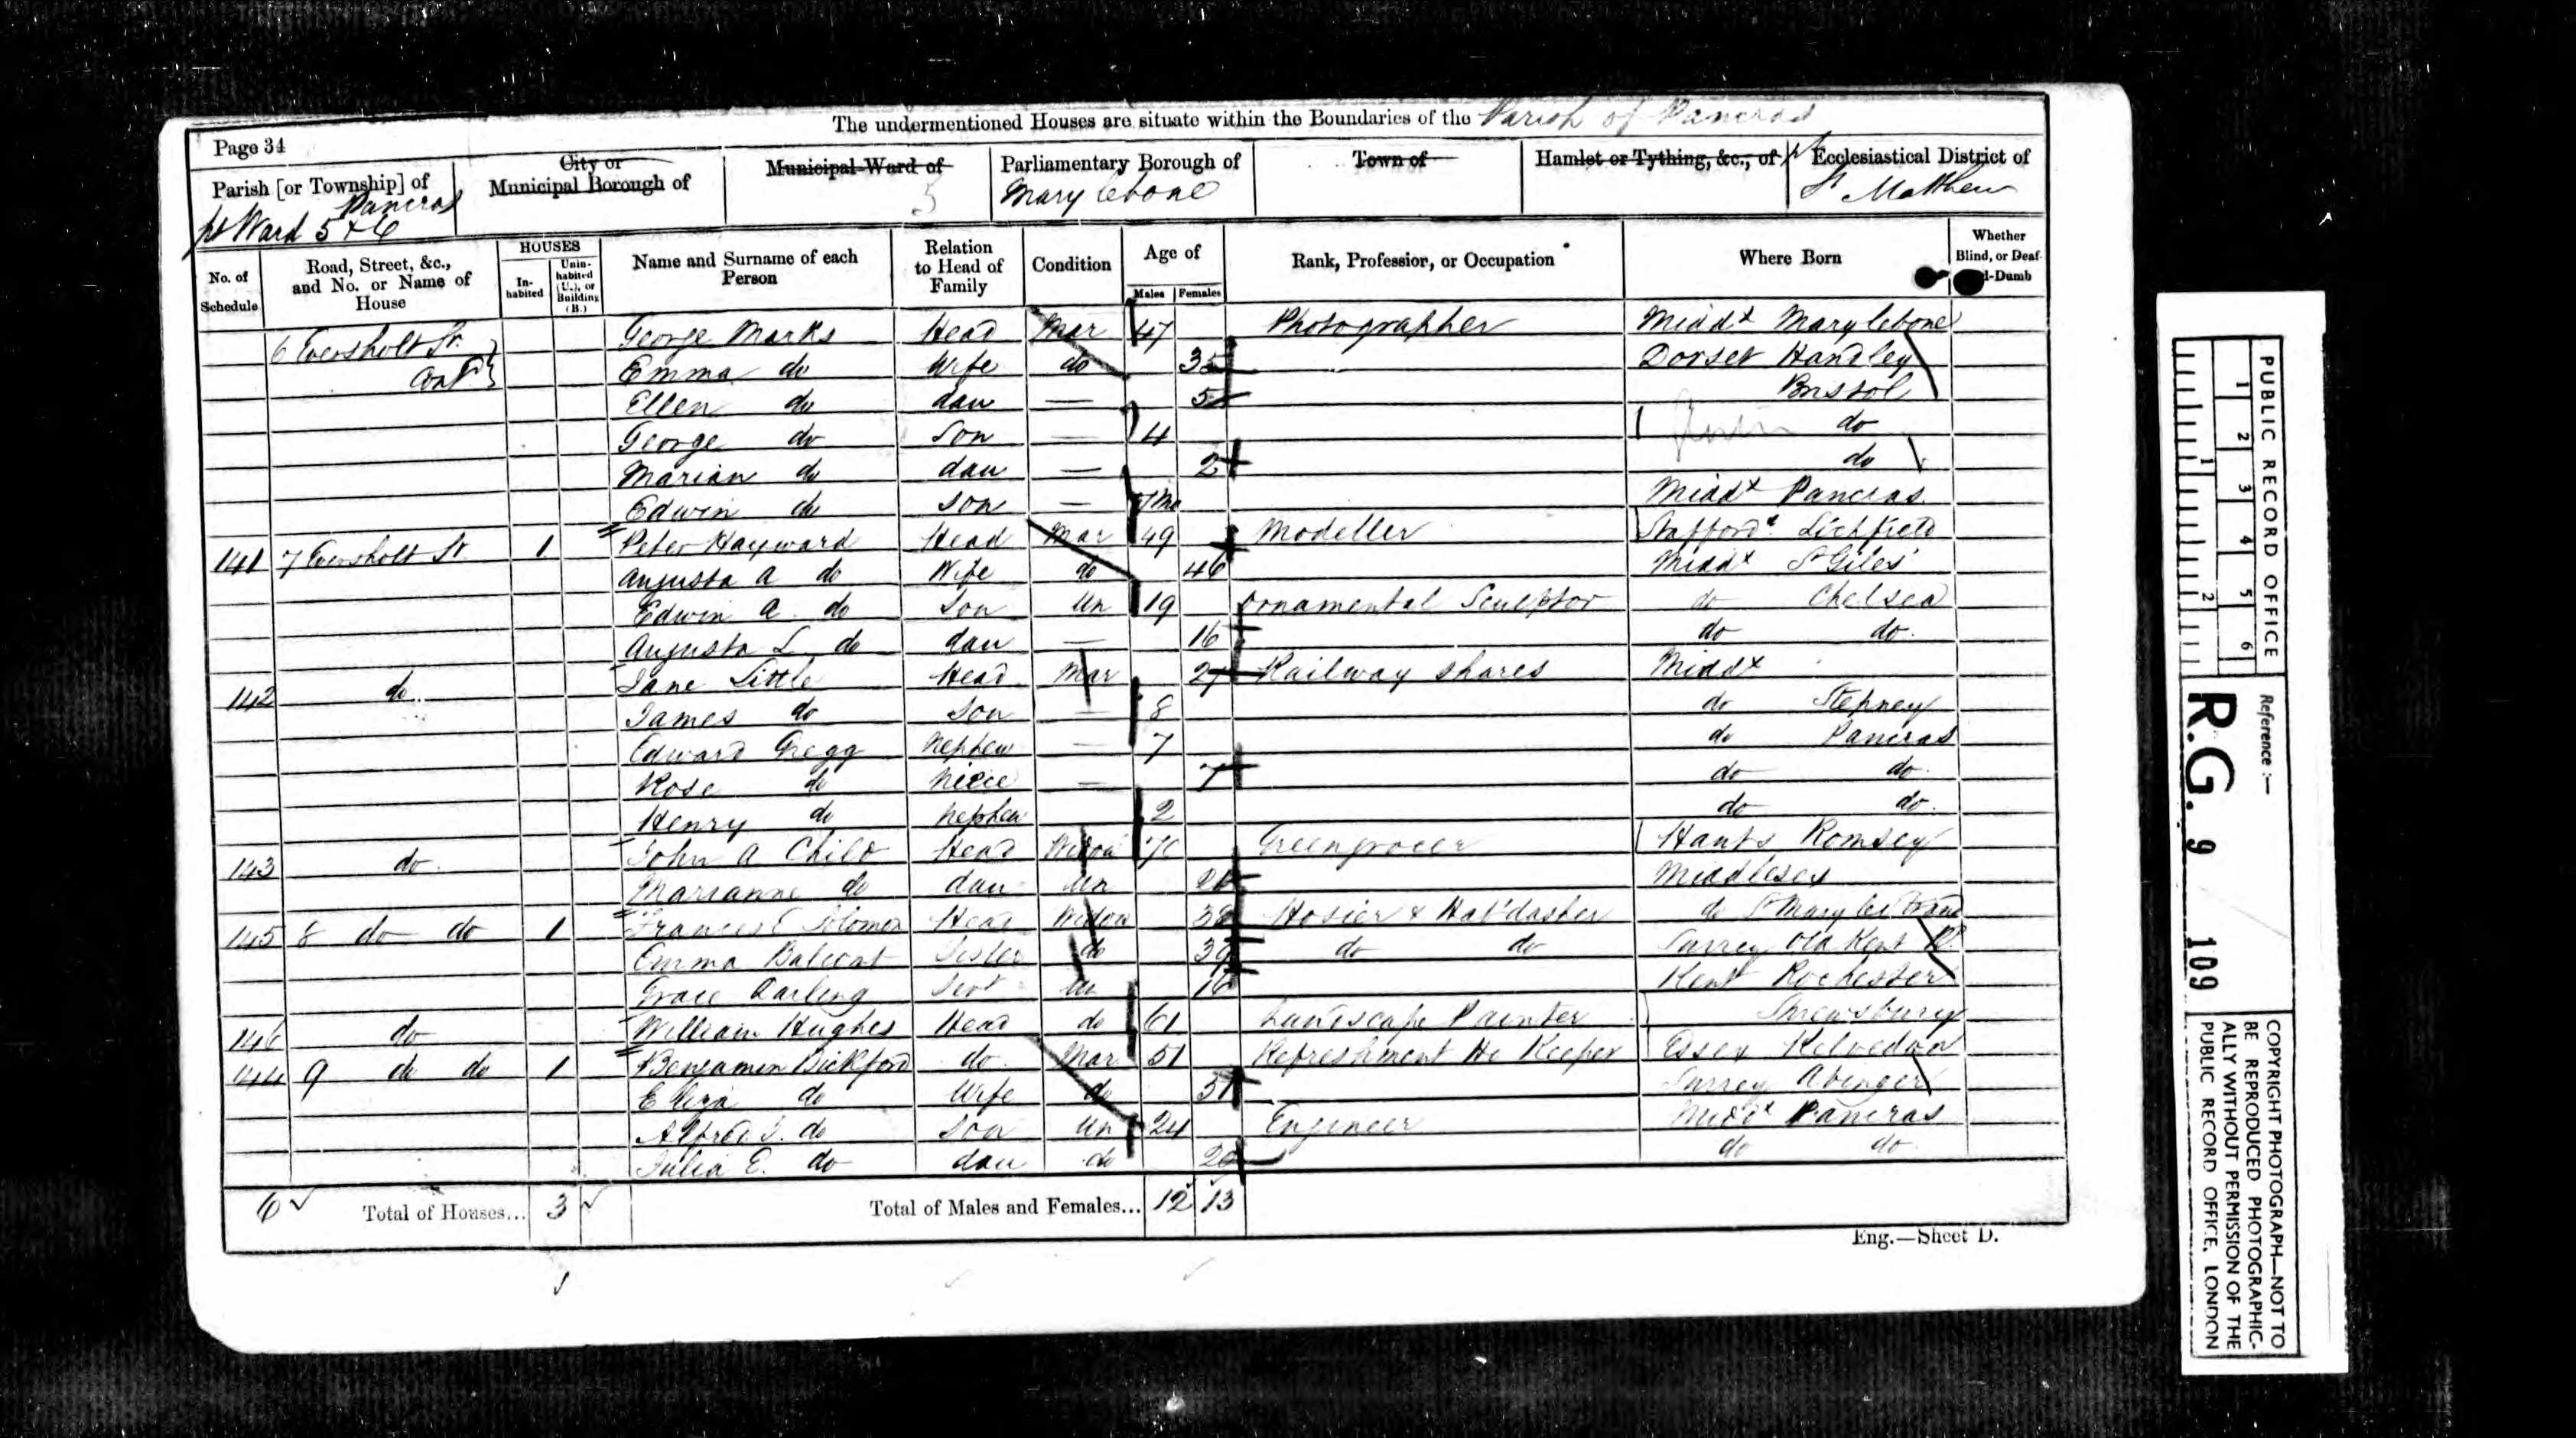 The undermentioned Houses are situate within the Boundaries of the Parish of Pancras
Page 34
Parish [or Township] of Pancras
pt Ward 5 & 6
City or Municipal Borough of
Municipal Ward of
5
Parliamentary Borough of Marylebone
Town of
Hamlet or Tything, &c., of
Ecclesiastical District of St Matthew
No. of Schedule
Road, Street, &c., and No. or Name of House
HOUSES
In-habited
Unin-habited (U.), or Building (B.)
Name and Surname of each Person
Relation to Head of Family
Condition
Age of
Males
Females
Rank, Profession, or Occupation
Where Born
Whether Blind, or Deaf-Dumb
6 Eversholt St. George Marks Head Mar 47 Photographer Middx Marylebone
Contd Emma do Wife do 35 Dorset Handley
Ellen do dau — 5 Bristol
George do Son — 4 do
Marian do dau — 2 do
Edwin do Son — Mo Middx Pancras
141 7 Eversholt St 1 Peter Hayward Head Mar 49 Modeller Stafford Lichfield
Augusta A do Wife do 46 Middx St Giles
Edwin A. do Son Un 19 Ornamental Sculptor do Chelsea
Augusta L do dau — 16 do do
142 do Jane Little Head Mar 27 Railway shares Middx
James do Son — 8 do Stepney
Edward Gregg Nephew — 7 do Pancras
Rose do Niece — 7 do do
Henry do Nephew 2 do do
143 do John A Child Head Widow Greengrocer Hants Romsey
Marianne do dau Un Middlesex
145 8 do do 1 Frances E Solomon Head Widow 38 Hosier & Hab'dasher do St Mary le Strand
Emma Sister do 39 do do Surrey Old Kent Rd
Grace Darling Servt Un 16 Kent Rochester
146 do William Hughes Head do 61 Landscape Painter Shrewsbury
144 9 do do 1 Benjamin Bickford do Mar 51 Refreshment Ho Keeper Essex Kelvedon
Eliza do Wife do 51 Surrey Abinger
Alfred J. do Son Un 24 Engineer Middx Pancras
Julia E. do dau do 20 do do
6 Total of Houses... 3 Total of Males and Females... 12 13
Eng.—Sheet D.
PUBLIC RECORD OFFICE
1 2 3 4 5 6
1 2
Reference :—
R.G. 9 109
COPYRIGHT PHOTOGRAPH—NOT TO
BE REPRODUCED PHOTOGRAPHIC-
ALLY WITHOUT PERMISSION OF THE
PUBLIC RECORD OFFICE, LONDON